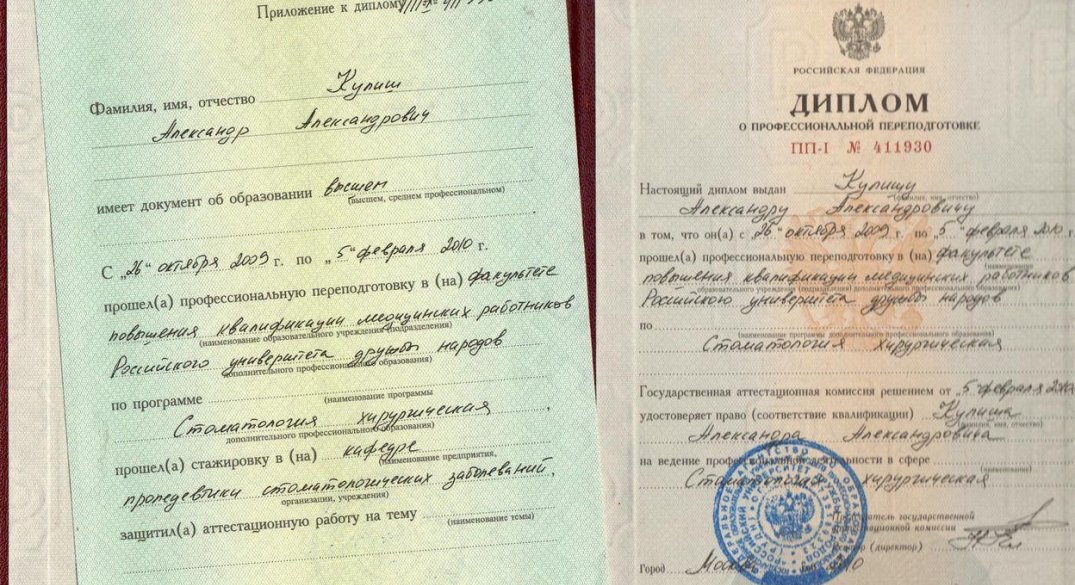 Приложение к диплому
Кулиш
Фамилия, имя, отчество
Александр Александрович
имеет документ об образовании высшем
(высшем, среднем профессиональном)
С „26“ октября 2009 г. по „5“ февраля 2010 г.
прошел(а) профессиональную переподготовку в (на) факультете
повышения квалификации медицинских работников
(наименование образовательного учреждения (подразделения)
Российского университета дружбы народов
дополнительного профессионального образования)
по программе
(наименование программы
Стоматология хирургическая
дополнительного профессионального образования)
прошел(а) стажировку в (на) кафедре
(наименование предприятия,
пропедевтики стоматологических заболеваний,
организации, учреждения)
защитил(а) аттестационную работу на тему
(наименование темы)
РОССИЙСКАЯ ФЕДЕРАЦИЯ
ДИПЛОМ
О ПРОФЕССИОНАЛЬНОЙ ПЕРЕПОДГОТОВКЕ
ПП-I № 411930
Настоящий диплом выдан Кулишу
(фамилия, имя, отчество)
Александру Александровичу
в том, что он(а) с „26“ октября 2009 г. по „5“ февраля 2010 г.
прошел(а) профессиональную переподготовку в (на) факультете
(наименование
повышения квалификации медицинских работников
образовательного учреждения (подразделения) дополнительного профессионального образования)
Российского университета дружбы народов
по
(наименование программы дополнительного профессионального образования)
Стоматология хирургическая
Государственная аттестационная комиссия решением от „5“ февраля 2010
удостоверяет право (соответствие квалификации) Кулиша
(фамилия, имя, отчество)
Александра Александровича
на ведение профессиональной деятельности в сфере
(наименование)
Стоматология хирургическая
Председатель государственной
аттестационной комиссии
Ректор (директор)
Город Москва